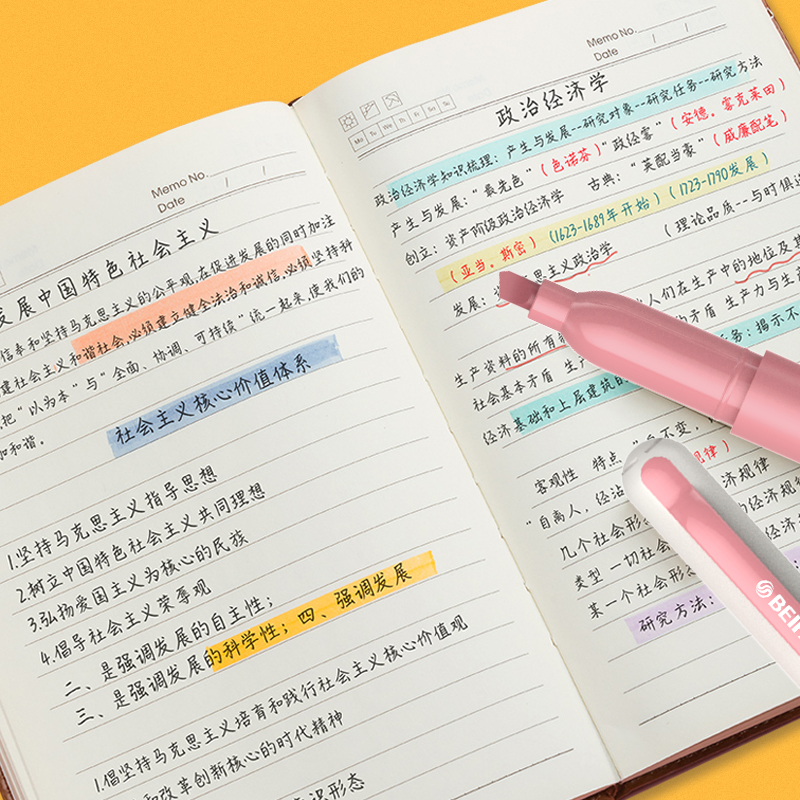 Memo No.
Date / /
发展中国特色社会主义
信奉和坚持马克思主义的公平观,在促进发展的同时加注
建社会主义和谐社会,必须建立健全法治和诚信,必须坚持科
把“以为本”与“全面、协调、可持续”统一起来,使我们的
和和谐。
社会主义核心价值体系
1.坚持马克思主义指导思想
2.树立中国特色社会主义共同理想
3.弘扬爱国主义为核心的民族
4.倡导社会主义荣辱观
二、是强调发展的自主性;
三、是强调发展的科学性;四、强调发展
1.倡坚持马克思主义培育和践行社会主义核心价值观
和改革创新核心的时代精神
识形态
Memo No.
Date / /
Mo Tu We Th Fr Sa Su
政治经济学
政治经济学知识梳理:产生与发展--研究对象--研究任务--研究方法
产生与发展:“最先色”(色诺芬)“政经蒙”(安德。蒙克莱田)
创立:资产阶级政治经济学 古典:“英配当家”(威廉配笔)
(亚当。斯密)(1623-1689年开始)(1723-1790发展)
发展: 思主义政治学 (理论品质--与时俱进
人们在生产中的地位及其
生产资料的所有制 的矛盾 生产力与生产
社会基本矛盾 生产 任务:揭示不
经济基础和上层建筑的
客观性 特点 不变, 规律)
“自离人,经沾 济规律
几个社会形态 的经济规
类型 一切社会 经济
某一个社会形态
研究方法:
BEIF